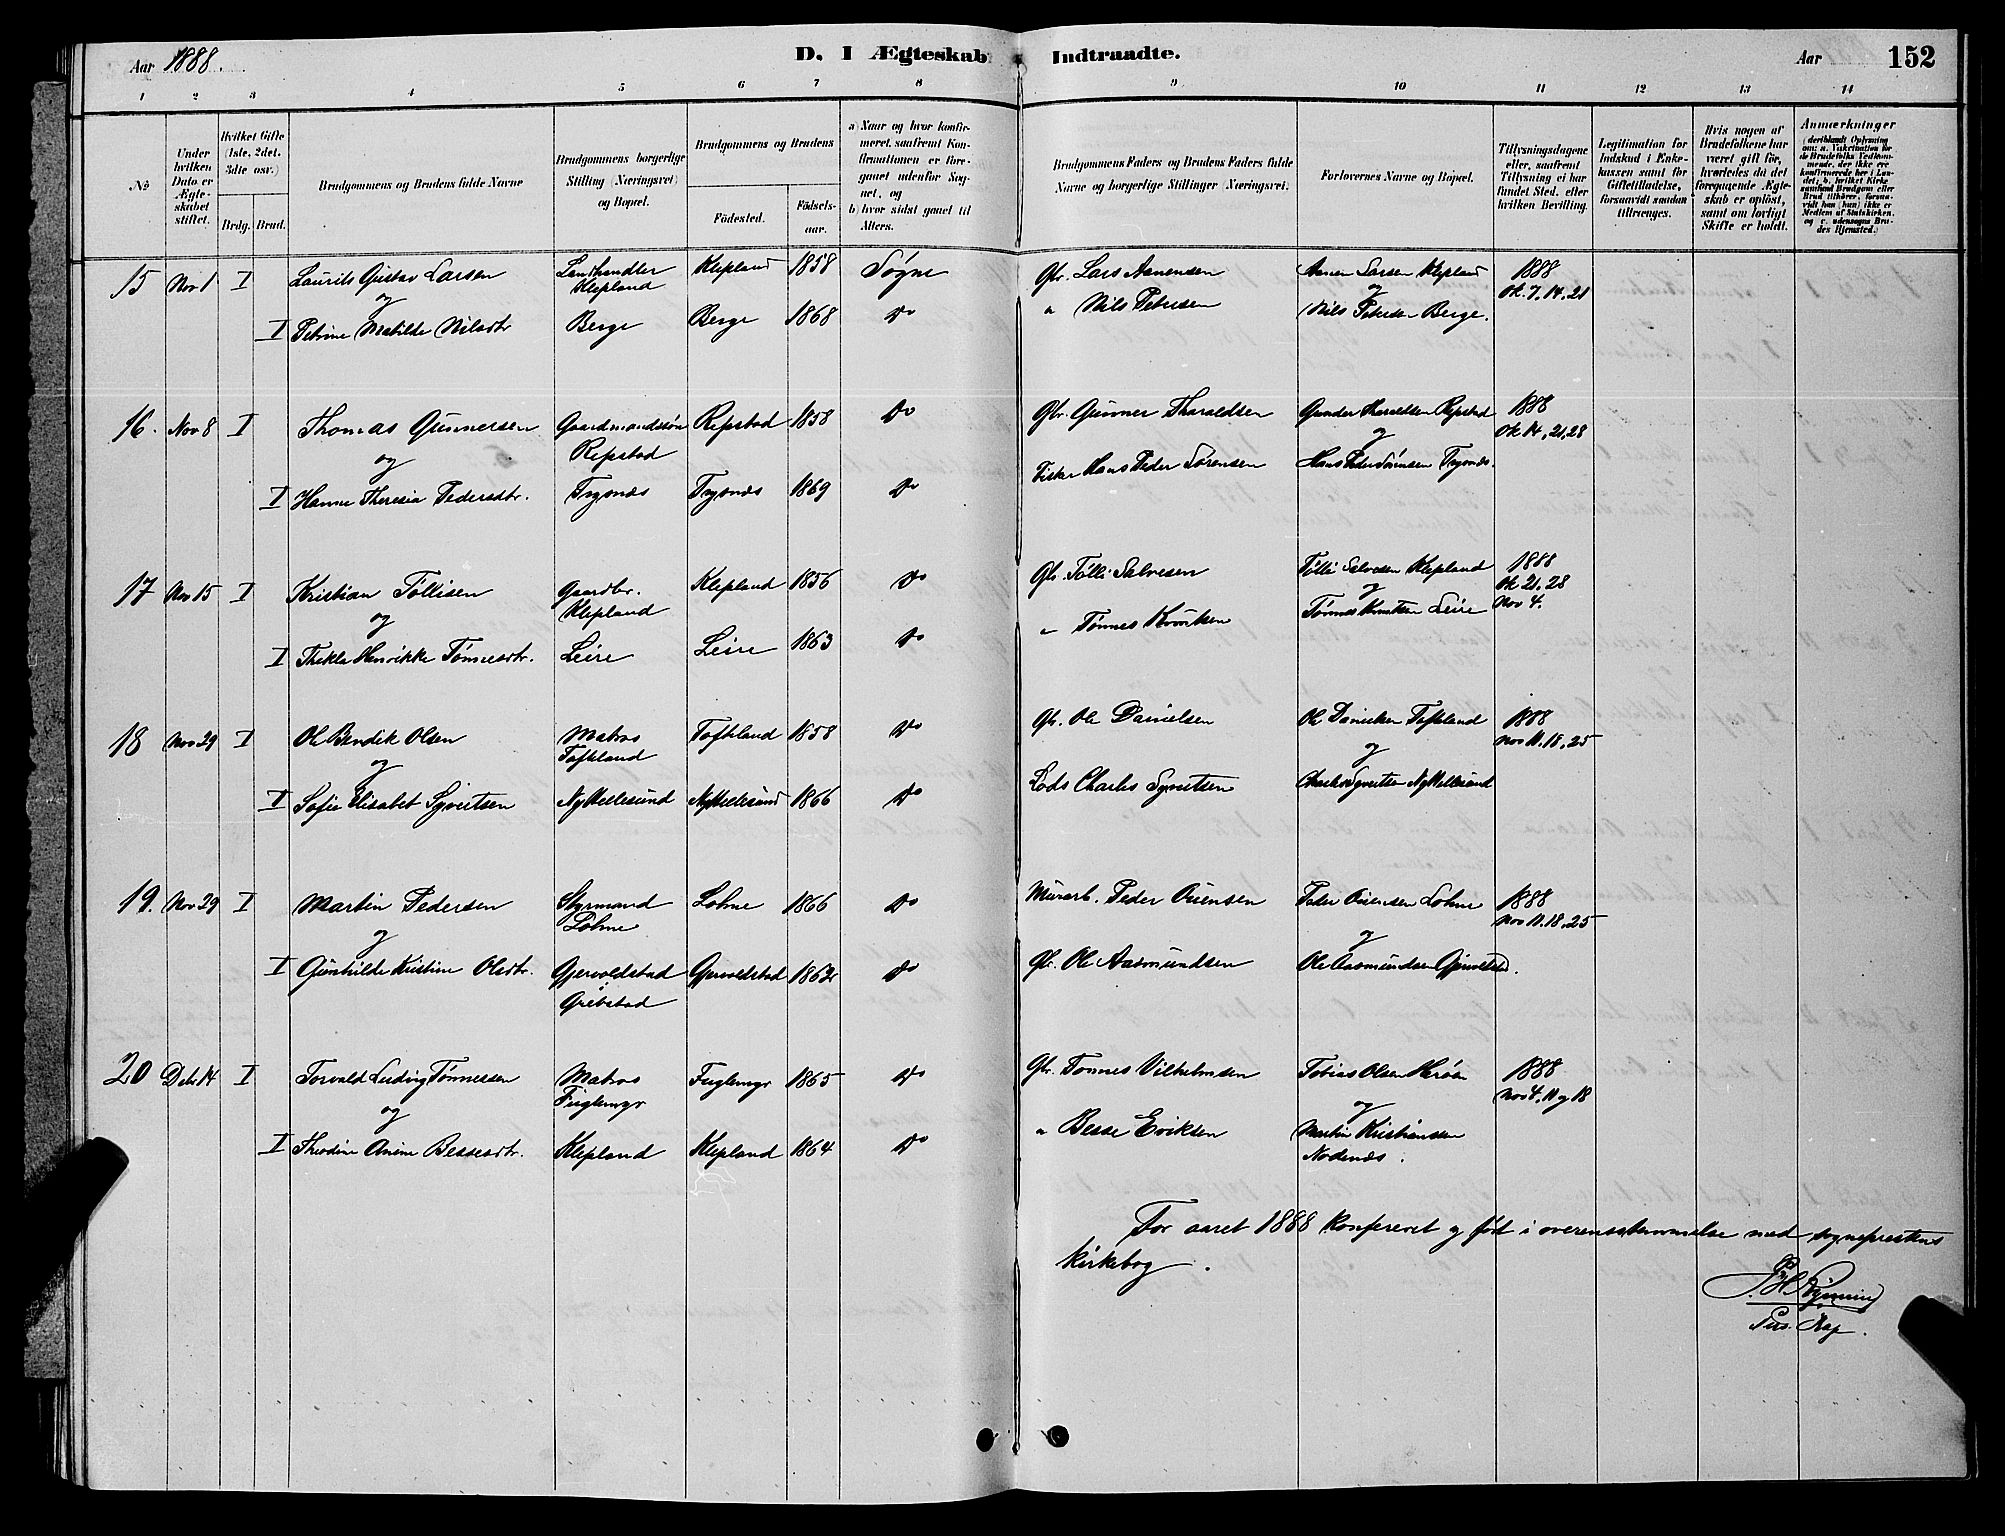 Aar 1888.
D. I Ægteskab Indtraadte.
Aar
152
1 2 3 4 5 6 7 8 9 10 11 12 13 14
No
Under hvilken Dato er Ægteskabet stiftet.
Hvilket Gifte (1ste, 2det, 3die osv.)
Brdg. Brud.
Brudgommens og Brudens fulde Navne
Brudgommens borgerlige Stilling (Næringsvei) og Bopæl.
Brudgommens og Brudens
Fødested.
Fødselsaar.
a) Naar og hvor konfirmeret, saafremt Konfirmationen er foregaaet udenfor Sognet, og
b) hvor sidst gaaet til Alters.
Brudgommens Faders og Brudens Faders fulde Navne og borgerlige Stillinger (Næringsvei)
Forlovernes Navne og Bopæl.
Tillysningsdagene eller, saafremt Tillysning ei har fundet Sted, efter hvilken Bevilling.
Legitimation for Indskud i Enkekassen samt for Giftetilladelse, forsaavidt saadan tiltrænges.
Hvis nogen af Brudefolkene har været gift før, hvorledes da det foregaaende Ægteskab er opløst, samt om lovligt Skifte er holdt.
Anmærkninger (deriblandt Oplysning om: a. Vakcination for de Brudefolks Vedkommende, der ikke ere konfirmerede her i Landet; b. hvilket Kirkesamfund Brudgom eller Brud tilhører, forsaavidt han (hun) ikke er Medlem af Statskirken, og c. udensogns Brudes Hjemsted.)
15 Nov 1 I Laurits Gustav Larsen Landhandler Klepland Klepland 1858 Søgne Gbr. Lars Aanensen Aanen Larsen Klepland 1888 Ok. 7, 14, 21
og
I Petrine Matilde Nilsdtr Berge Berge 1868 Do " Nils Petersen Nils Petersen Berge.
16. Nov 8 I Thomas Gunnersen Gaardmandssøn Repstad Repstad 1858 Do Gbr. Gunner Tharaldsen Gunder Tharaldsen Repstad 1888 Ok 14, 21, 28
og
I Hanne Theresia Pedersdtr. Trysnæs Trysnæs 1869 Do Fisker Hans Peder Sørensen Hans Peder Sørensen Trysnæs.
17 Nov 15 I Kristian Tøllisen Gaardbr. Klepland Klepland 1856 Do Gbr. Tølli Salvesen Tølli Salvesen Klepland 1888 Ok 21, 28 Nov 4.
og
I Thekla Henrikke Tønnesdtr. Leire Leire 1863 Do " Tønnes Knutsen Tønnes Knutsen Leire
18 Nov 29 I Ole Bendik Olsen Matros Toftland Toftland 1858 Do Gbr. Ole Danielsen Ole Danielsen Toftland 1888 Nov 11, 18, 25
og
I Sofie Elisabet Syvertsen Ny Hellesund Ny Hellesund 1866 Do Lods Charles Syvertsen Charles Syvertsen Ny Hellesund
19. Nov 29 I Martin Pedersen Styrmand Lohne Lohne 1866 Do Murarb. Peder Ouensen Peder Ouensen Lohne 1888 Nov 11, 18, 25
og
I Gunhilde Kristine Olsdtr. Gjervoldstad Grebstad Gjervoldstad 1862 Do Gbr. Ole Aasmundsen Ole Aasmundsen Gjervoldstad.
20 Debr 14 I Torvald Ludvig Tønnessen Matros Fuglemyr Fuglemyr 1865 Do Gbr. Tønnes Vilhelmsen Tobias Olsen Herøen 1888 Nov 4, 11 og 18
og
I Theodine Anine Bessesdtr. Klepland Klepland 1864 Do " Besse Eriksen Martin Kristiansen Nodenæs.
For aaret 1888 konfereret og fört i overensstemmelse med sogneprestens
kirkebog.
Pers. Kap.